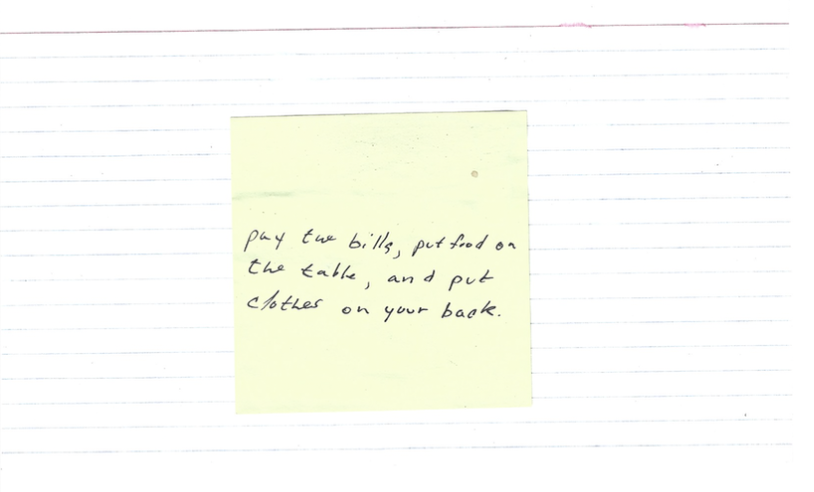 pay the bills, put food on
the table, and put
clothes on your back.